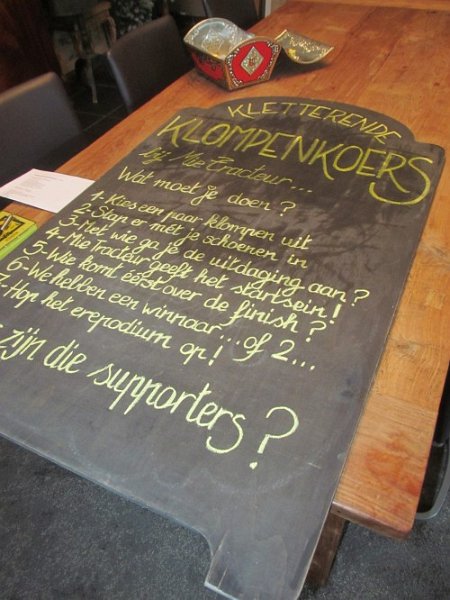 KLETTERENDE
KLOMPENKOERS
bij Mie Tracteur...
Wat moet je doen?
1- Kies een paar klompen uit
2- Stap er met je schoenen in
3- Met wie ga je de uitdaging aan?
4- Mie Tracteur geeft het startsein!
5- Wie komt éérst over de finish?
6- We hebben een winnaar...of 2...
- Hop het erepodium op!
zijn die supporters?